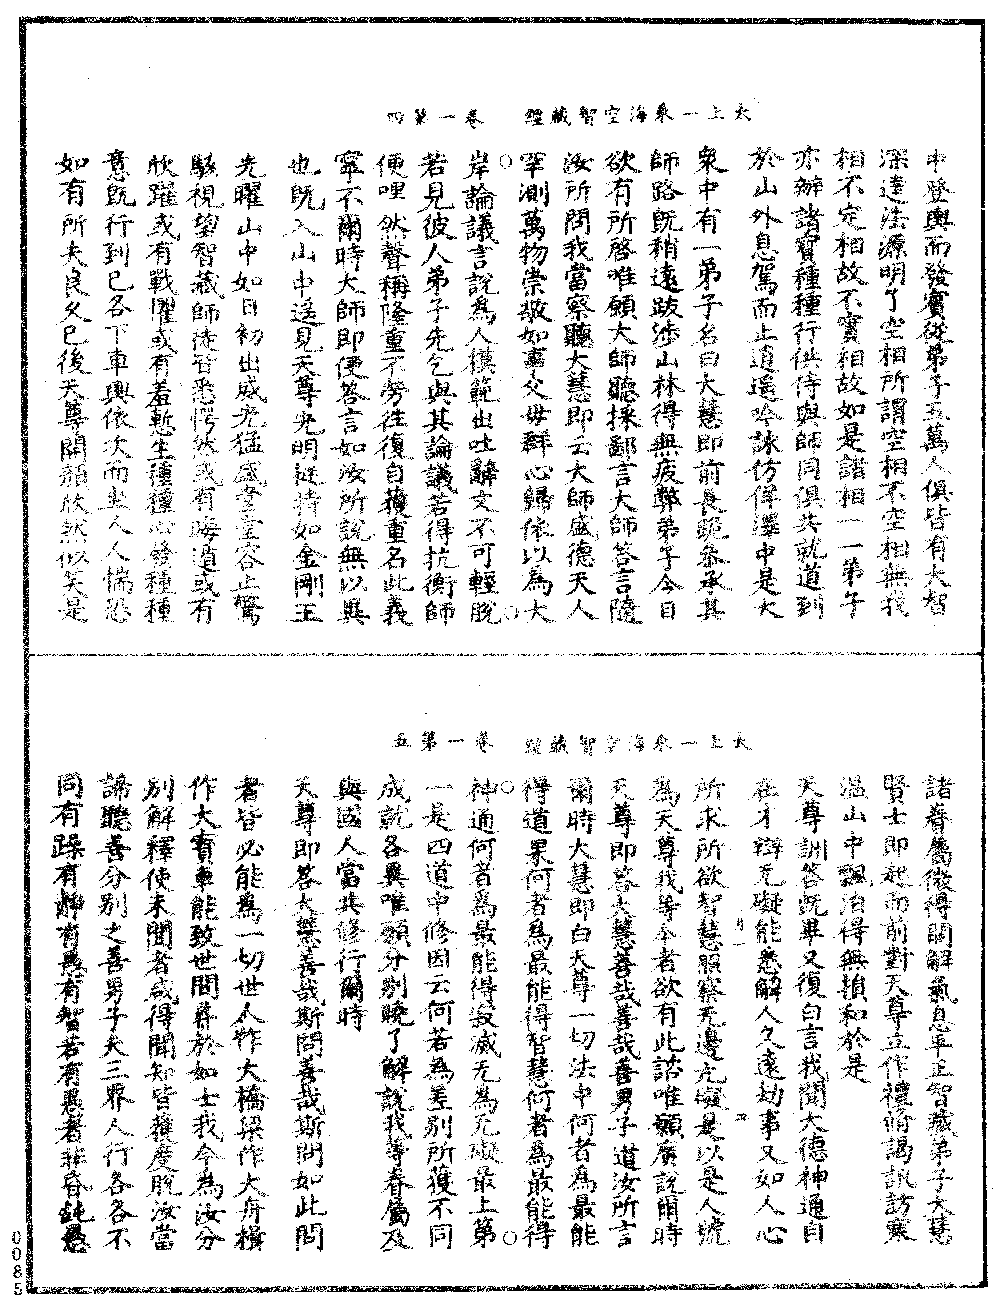 太上一乘海空智藏經　卷一第四
中登輿而發賓從弟子五萬人俱皆有大智
深達法源明了空相所謂空相不空相無我
相不定相故不實相故如是諸相一一弟子
亦辦諸寶種種行供侍與師同俱共就道到
於山外息駕而止逍遥吟詠仿偟澤中是大
衆中有一弟子名曰大慧即前長跪恭承其
師路既稍遠跋涉山林得無疲弊弟子今日
欲有所啓唯願大師聽採鄙言大師答言隨
汝所問我當察聽大慧即云大師盛德天人
罕測萬物崇敬如事父母群心歸依以為大
岸論議言說為人模範出吐辭文不可輕脫
若見彼人弟子先乞與其論議若得抗衡師
便哩然聲稱隆重不勞往復自獲重名此義
寧不爾時大師即便答言如汝所說無以異
也既入山中遥見天尊光明挺特如金剛王
光曜山中如日初出威光猛盛堂堂容止驚
駭視望智藏師徒皆悉愕然或有晦道或有
欣躍或有戰懼或有羞慙生種種心發種種
意既行到已各下車輿依次而坐人人惴恐
如有所失良久已後天尊開顏欣然似笑是
太上一乘海空智藏經　卷一第五
諸眷屬微得開解氣息平正智藏弟子大慧
賢士即起而前對天尊立作禮脩謁訊訪寒
温山中飄泊得無損和於是
天尊訓答既畢又復白言我聞大德神通自
在才辯无礙能悉解人久遠劫事又如人心
所求所欲智慧照察无邊无礙是以是人號
為天尊我等今者欲有此諮唯願廣說爾時
天尊即答大慧善哉善哉善男子道汝所言
爾時大慧即白天尊一切法中何者為最能
得道果何者為最能得智慧何者為最能得
神通何者為最能得寂滅无為无礙最上第
一是四道中修因云何若為差別所獲不同
成就各異唯願分別曉了解說我等眷屬及
與國人當共修行爾時
天尊即答大慧善哉斯問善哉斯問如此問
者皆必能為一切世人作大橋梁作大舟檝
作大寶車能致世間尋於如士我今為汝分
別解釋使未聞者咸得聞知皆獲度脫汝當
諦聽善分別之善男子夫三界人行各各不
同有躁有靜有愚有智若有愚者非昏鈍愚
0085